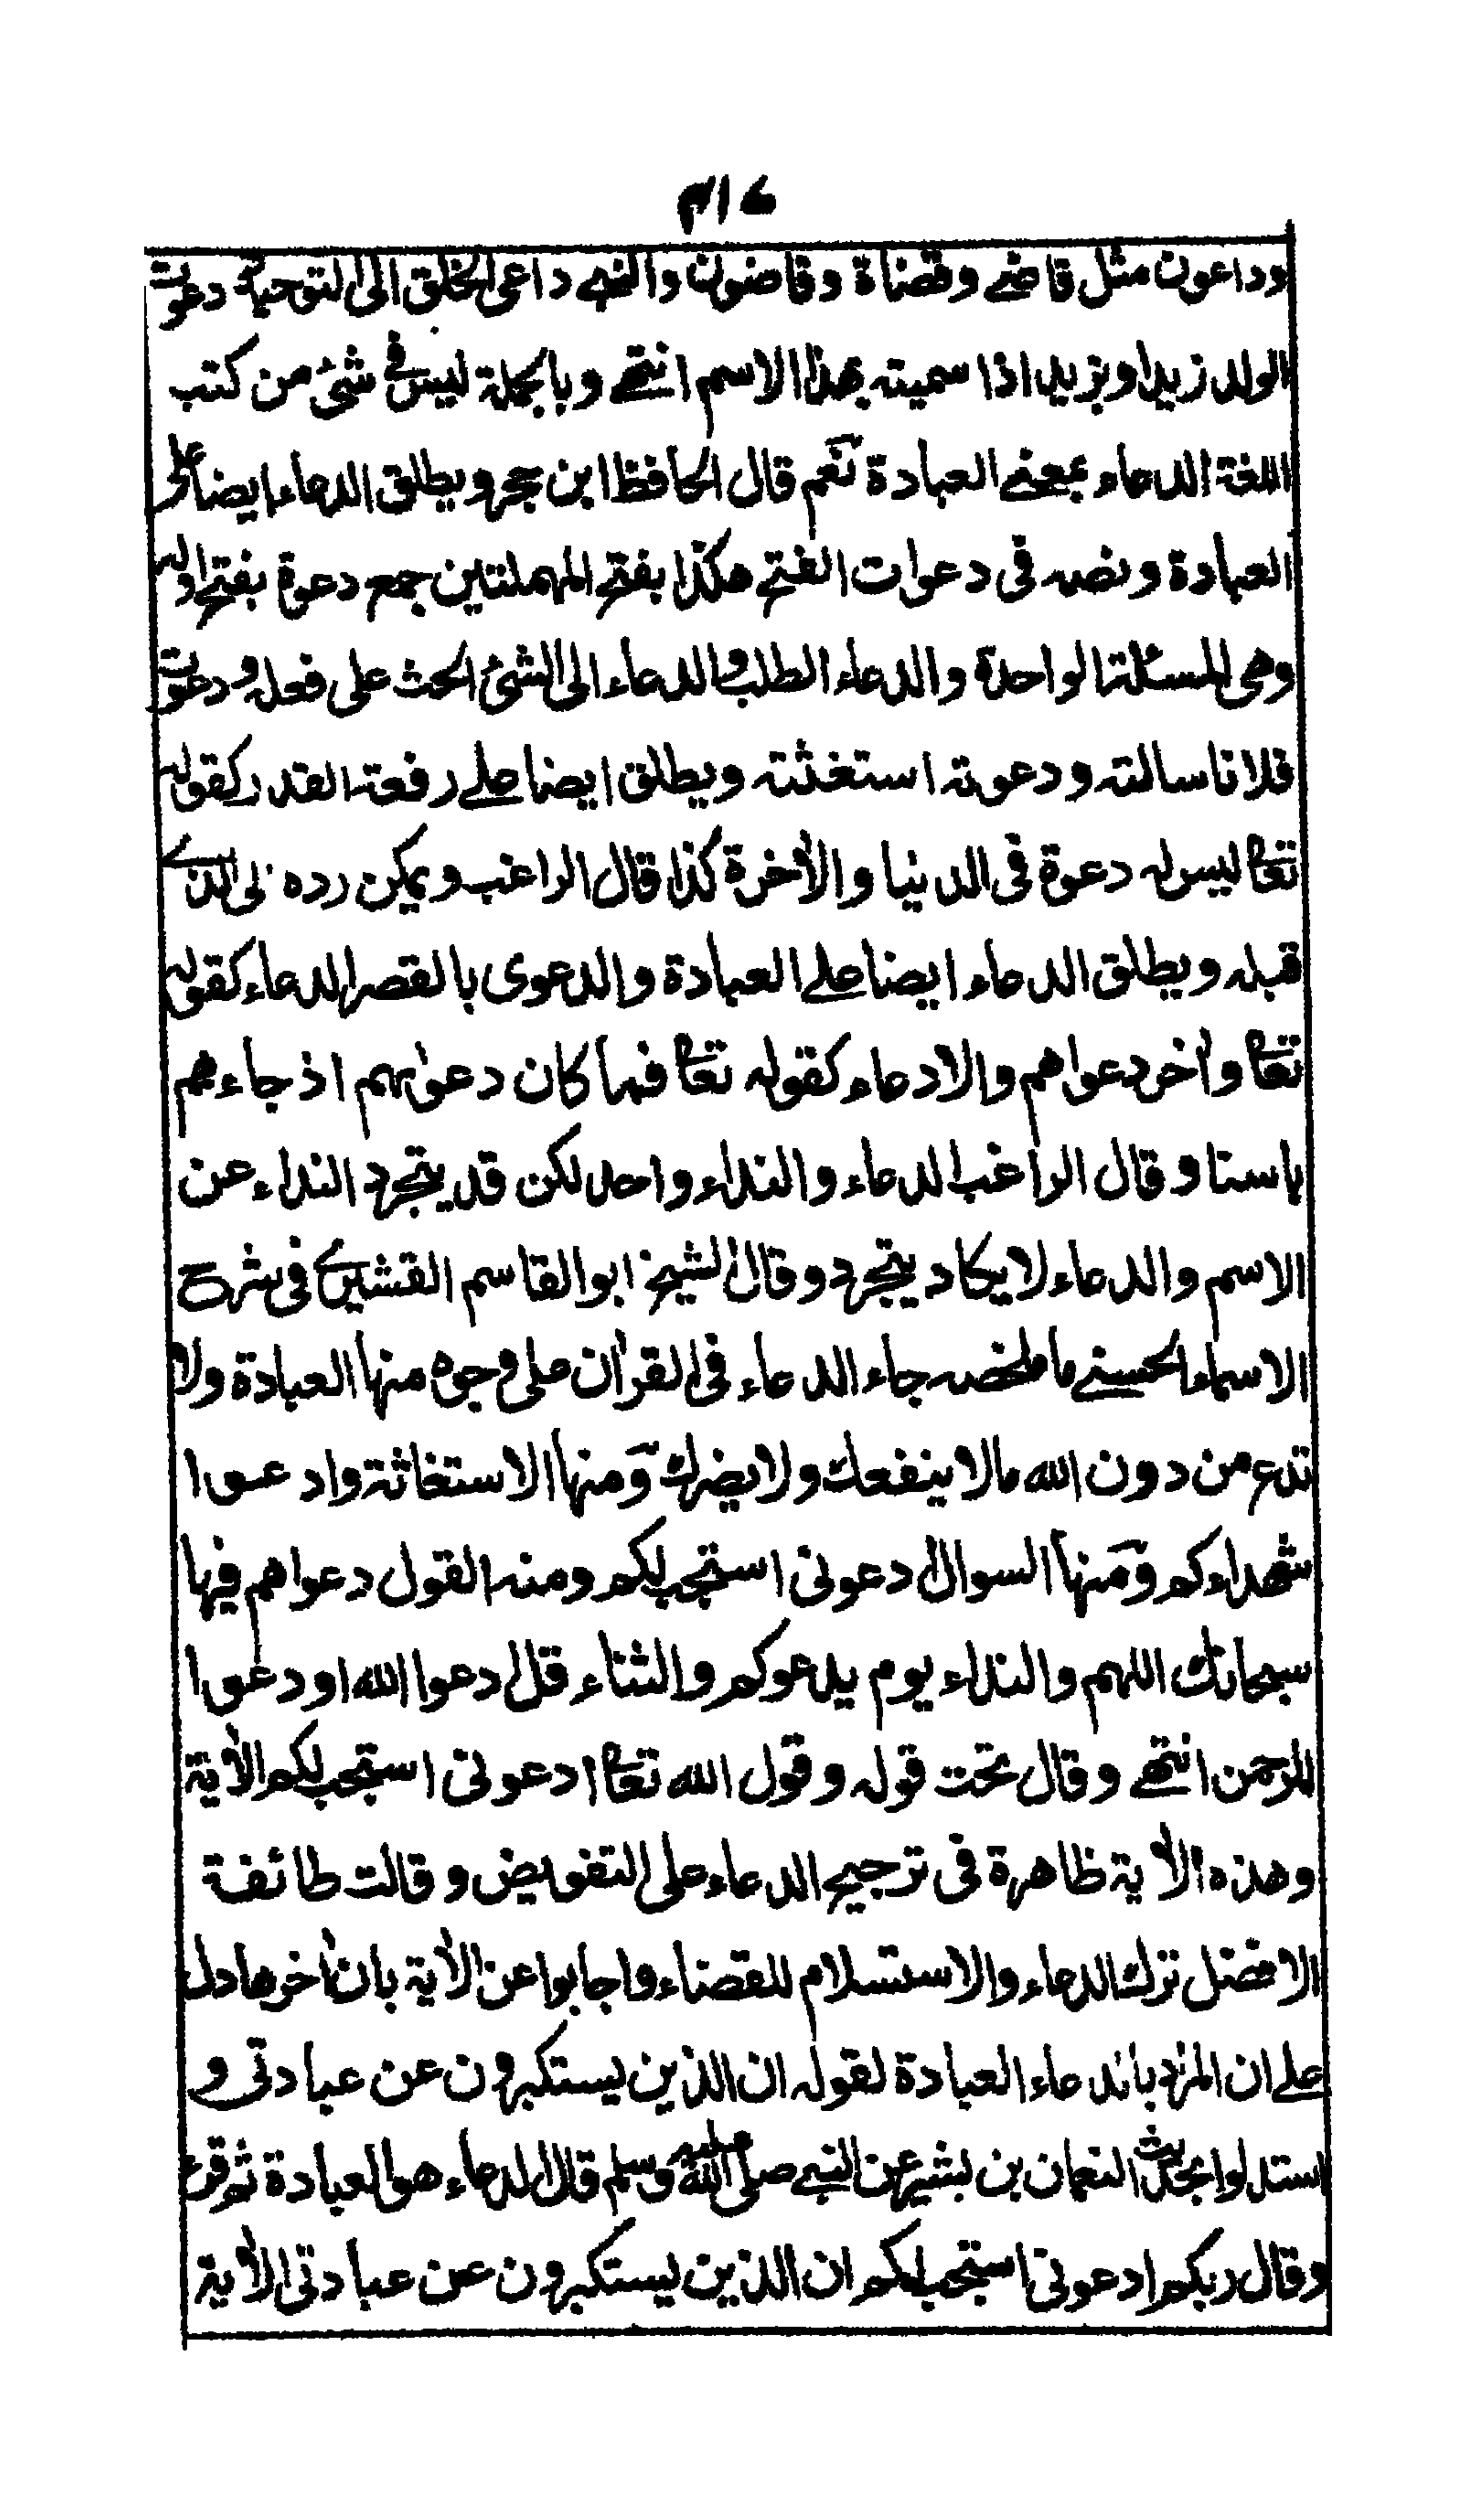 ۴۱۶
وداعون مثل قاضى وقضاة وقاضون والنبى داعى الخلق الى التوحيد ودعوت
الولد زيدا وبزيد اذا سميته بهذا الاسم انتهى وبالجملة ليس فى شئ من كتب
اللغة الدعاء بمعنى العبادة نعم قال الحافظ ابن حجر ويطلق الدعاء ايضا على
العبادة ونصه فى دعوات الفتح هكذا بفتح المهملتين جمع دعوة بفتح اوله
وهى المسئلة الواحدة والدعاء الطلب والدعاء الى الشئ الحث على فعله ودعوت
فلانا سالته ودعوته استغثته ويطلق ايضا على رفعة القدر كقوله
تعا ليس له دعوة فى الدنيا والأخرة كذا قال الراغب ويمكن رده الى الذى
قبله ويطلق الدعاء ايضا على العبادة والدعوى بالقصر الدعاء كقوله
تعا وأخر دعواهم والادعاء كقوله تعا فما كان دعوٰهم اذ جاءهم
باسنا وقال الراغب الدعاء والنداء واحد لكن قد يتجرد النداء عن
الاسم والدعاء لا يكاد يتجرد وقال الشيخ ابو القاسم القشيرى فى شرح
الاسماء الحسنى ما ملخصه جاء الدعاء فى القرأن على وجوه منها العبادة ولا
تدع من دون الله مالا ينفعك ولا يضرك ومنها الاستغاثة وادعوا
شهداءكم ومنها السوال ادعونى استجب لكم ومنه القول دعواهم فيها
سبحانك اللهم والنداء يوم يدعوكم والثناء قل ادعوا الله او دعوا
الرحمن انتهى وقال تحت قوله وقول الله تعا ادعونى استجب لكم الأية
وهذه الأية ظاهرة فى ترجيح الدعاء على التفويض وقالت طائفة
الافضل ترك الدعاء والاستسلام للقضاء واجابوا عن الأية بان أخرها دل
على ان المراد بالدعاء العبادة لقوله ان الذين يستكبرون عن عبادتى و
استدلوا بحديث النعمان بن بشير عن النبى صلى الله عليه وسلم قال الدعاء هو العبادة ثم قرء
وقال ربكم ادعونى استجب لكم ان الذين يستكبرون عن عبادتى الأية